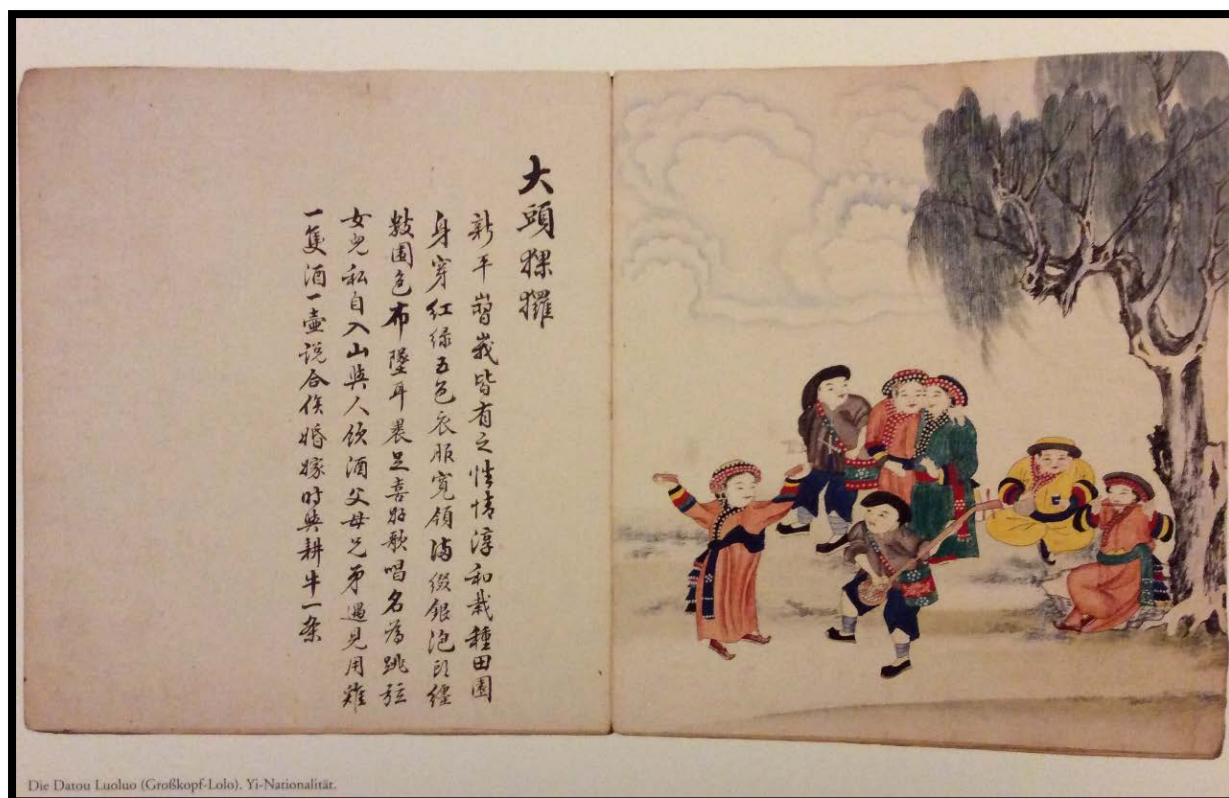 大頭猓玀
新平嶍峩皆有之性情淳和栽種田園
身穿紅綠五色衣服寬領滿綴銀泡頭纏
數圍色布墜耳裹足喜好歌唱名為跳弦
女兒私自入山與人飲酒父母兄弟遇見用雞
一隻酒一壺說合俟婚嫁時與耕牛一条
Die Datou Luoluo (Großkopf-Lolo). Yi-Nationalität.